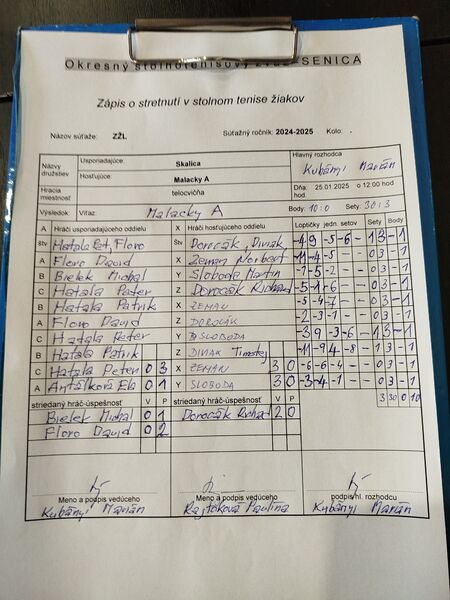 Okresný stolnotenisový zväz SENICA
Zápis o stretnutí v stolnom tenise žiakov
Názov súťaže: ZŽL Súťažný ročník: 2024-2025 Kolo: .
Názvy družstiev Usporiadajúce: Skalica Hlavný rozhodca
Hosťujúce: Malacky A Kubányi Marián
Hracia miestnosť telocvičňa Dňa: 25.01.2025 o 12:00 hod. hod.
Výsledok: Víťaz: Malacky A Body: 10:0 Sety: 30:3
A Hráči usporiadajúceho oddielu X Hráči hosťujúceho oddielu Loptičky jedn. setov Sety Body
Štv Hatala Pet, Floro Štv Dorocák, Diviak -4 9 -5 -6 - 1 3 - 1
A Floro David X Zeman Norbert -11 -4 -5 - - 0 3 - 1
B Bielek Michal Y Sloboda Martin -7 -5 -2 - - 0 3 - 1
C Hatala Peter Z Dorocák Richard -5 -1 -6 - - 0 3 - 1
B Hatala Patrik X ZEMAN -5 -4 -7 - - 0 3 - 1
A Floro David Z DOROCÁK -2 -3 -1 - - 0 3 - 1
C Hatala Peter Y SLOBODA -3 9 -3 -6 - 1 3 - 1
B Hatala Patrik Z DIVIAK Timotej -11 -9 4 -8 - 1 3 - 1
C Hatala Peter 0 3 X ZEMAN 3 0 -6 -6 -4 - - 0 3 - 1
A Antálková Ela 0 1 Y SLOBODA 3 0 -3 -4 -1 - - 0 3 - 1
striedaný hráč-úspešnosť V P striedaný hráč-úspešnosť V P 3 30 0 10
Bielek Michal 0 1 Dorocák Richard 2 0
Floro David 0 2
Meno a podpis vedúceho Meno a podpis vedúceho podpis hl. rozhodcu
Kubányi Marián Rajtóková Paulína Kubányi Marián